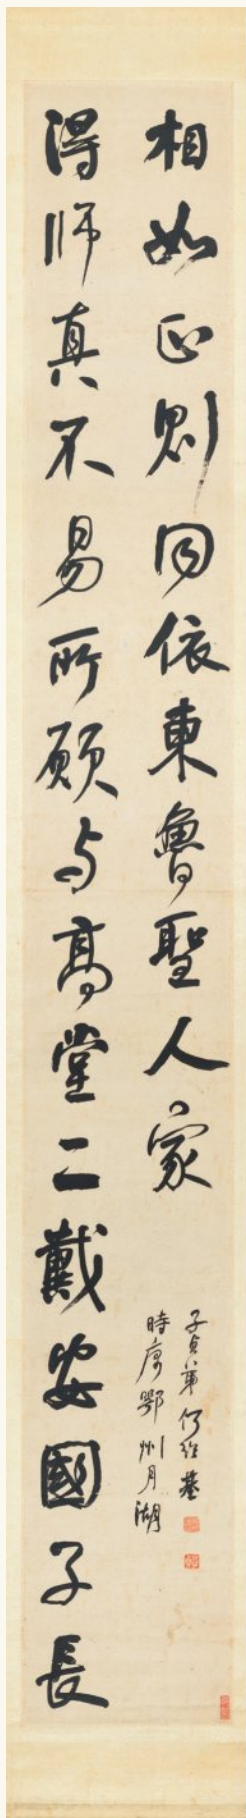 相如正則同依東魯聖人家
得師真不易所願与高堂二戴安國子長
子貞弟何紹基
時寓鄂州月湖